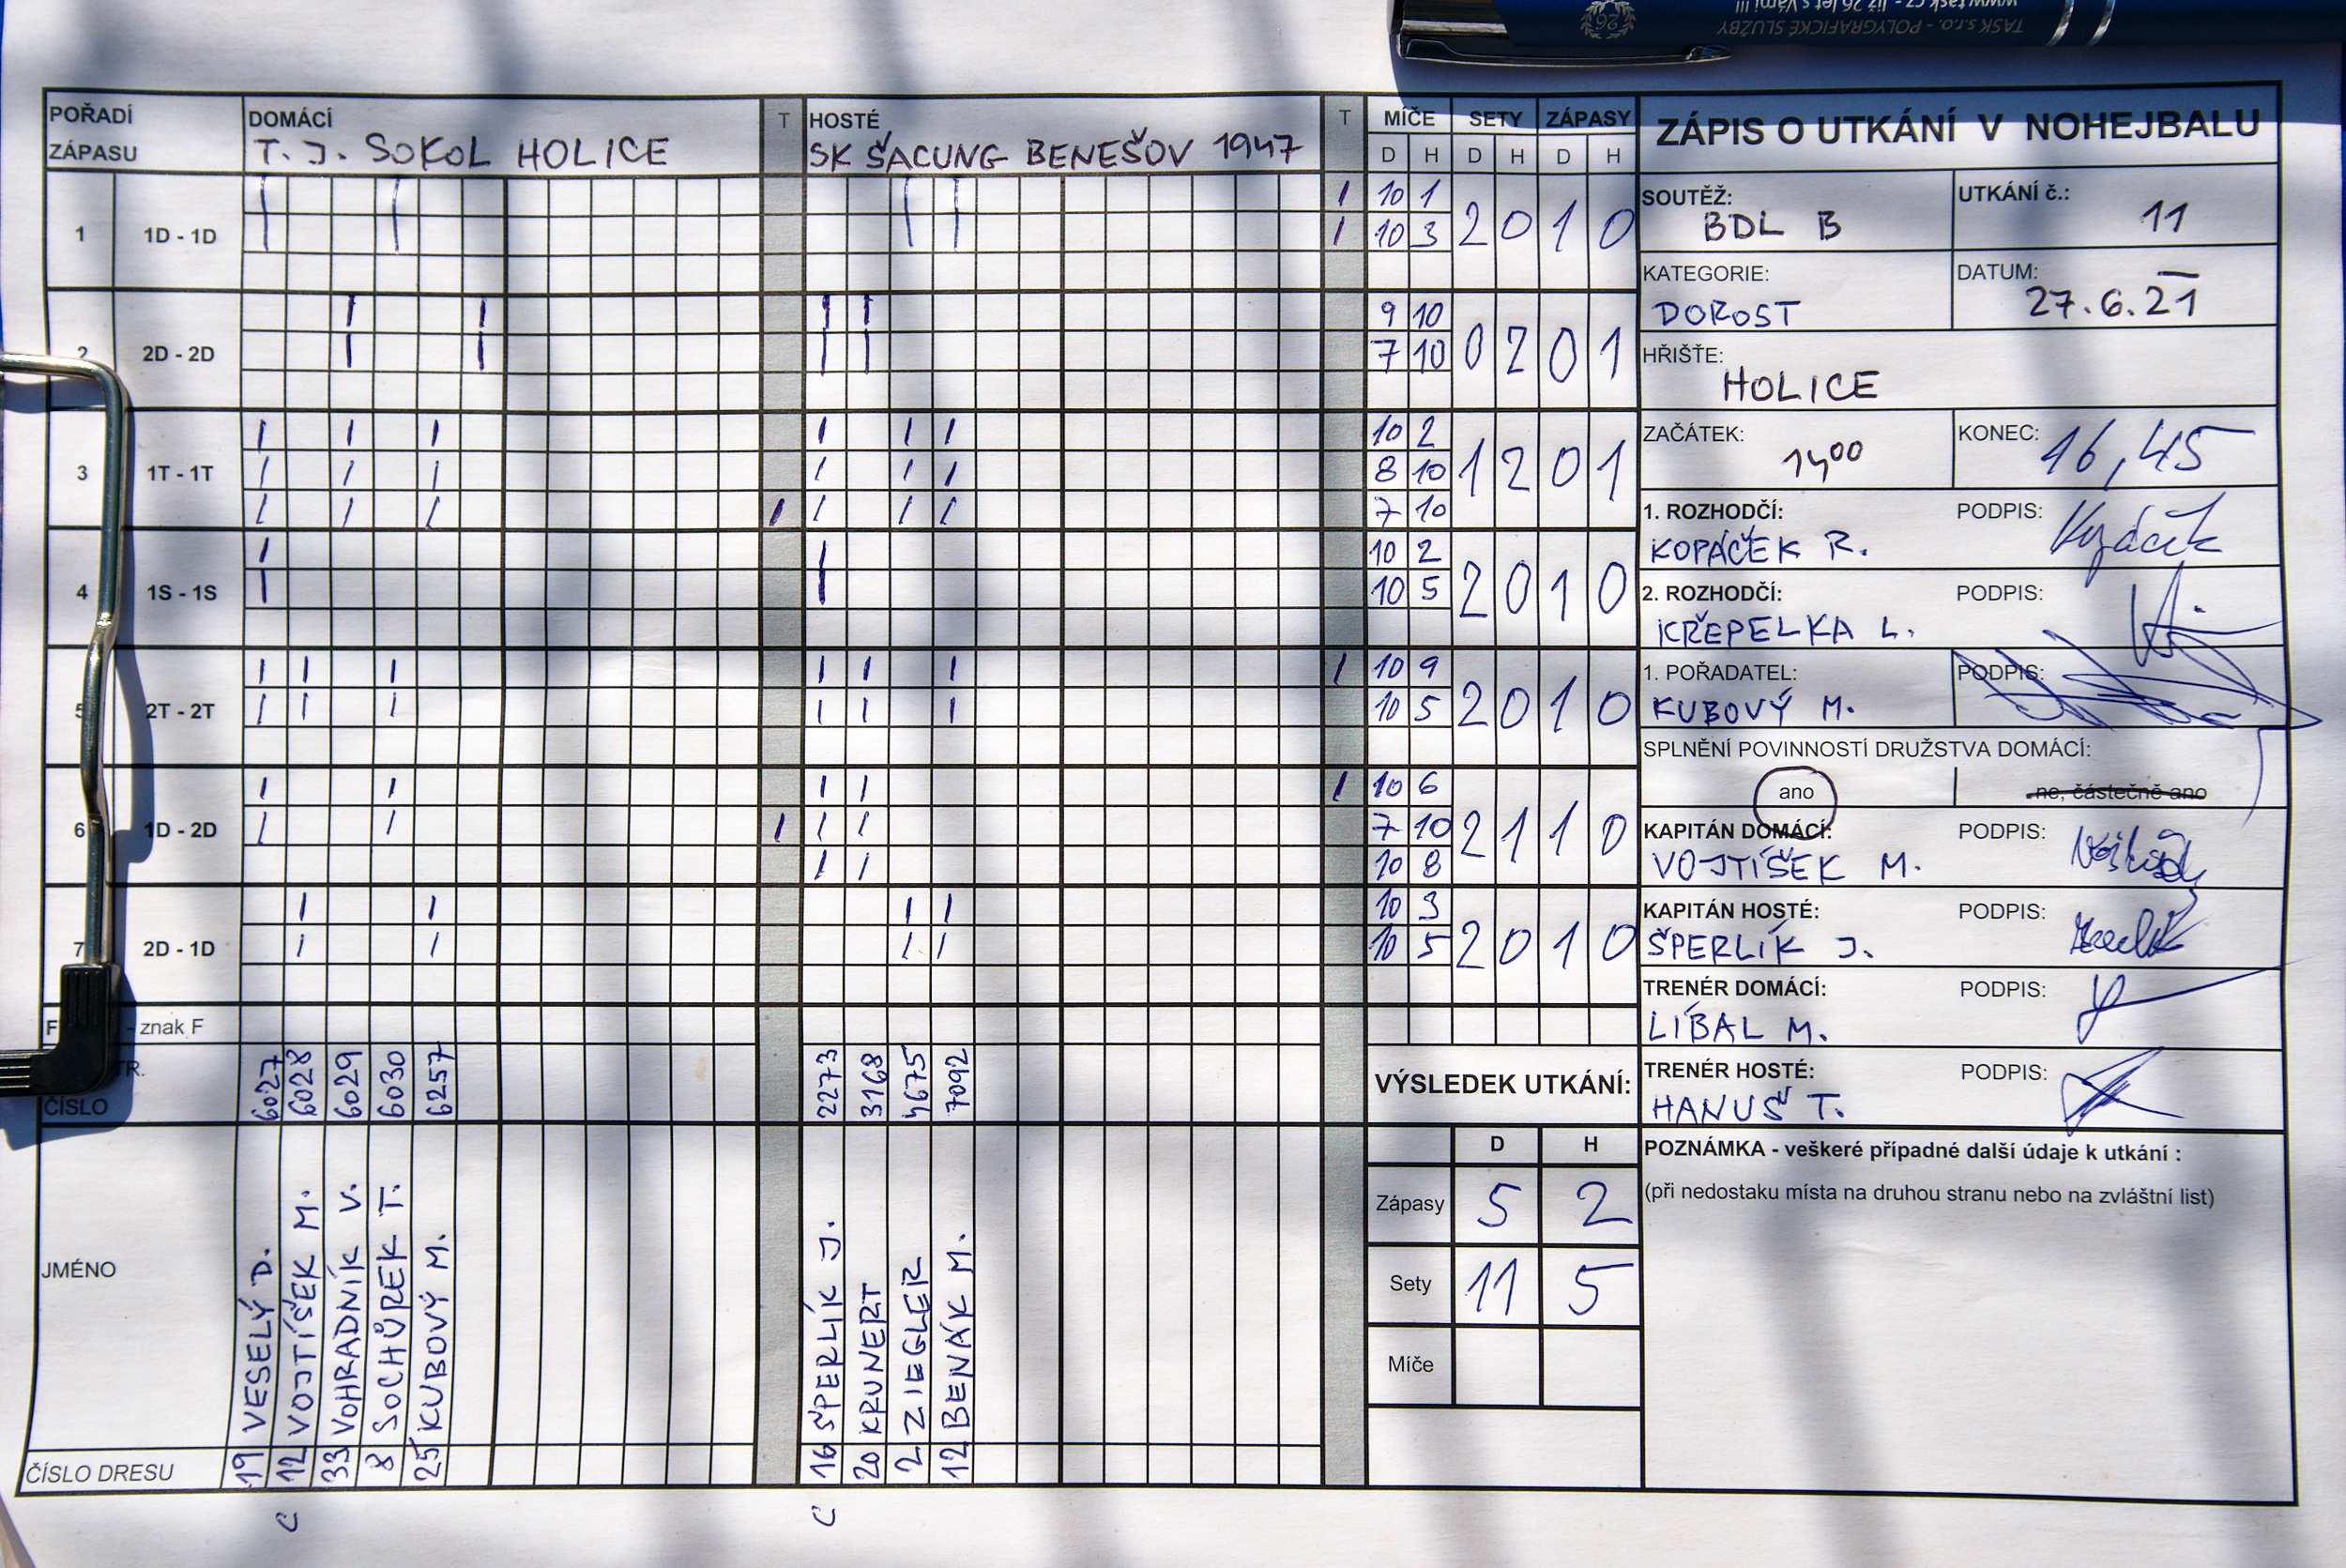 www.task.cz - již 26 let s Vámi !!!
TASK s.r.o. - POLYGRAFICKÉ SLUŽBY
26
POŘADÍ ZÁPASU
DOMÁCÍ
T. J. SOKOL HOLICE
T
HOSTÉ
SK ŠACUNG BENEŠOV 1947
T
MÍČE SETY ZÁPASY
D H D H D H
1 1D - 1D
10 1
10 3
2 0 1 0
2 2D - 2D
9 10
7 10
0 2 0 1
3 1T - 1T
10 2
8 10
7 10
1 2 0 1
4 1S - 1S
10 2
10 5
2 0 1 0
5 2T - 2T
10 9
10 5
2 0 1 0
6 1D - 2D
10 6
7 10
10 8
2 1 1 0
7 2D - 1D
10 3
10 5
2 0 1 0
F - znak F
TR.
ČÍSLO
6027 6028 6029 6030 6257
2273 3168 4675 7092
JMÉNO
VESELÝ D.
VOJTÍŠEK M.
VOHRADNÍK V.
SOCHŮREK T.
KUBOVÝ M.
ŠPERLÍK J.
KRUNERT
ZIEGLER
BENÁK M.
ČÍSLO DRESU
19 12 33 8 25
16 20 2 12
C C
VÝSLEDEK UTKÁNÍ:
D H
Zápasy 5 2
Sety 11 5
Míče
ZÁPIS O UTKÁNÍ V NOHEJBALU
SOUTĚŽ:
BDL B
UTKÁNÍ č.:
11
KATEGORIE:
DOROST
DATUM:
27.6.21
HŘIŠTE:
HOLICE
ZAČÁTEK:
1400
KONEC:
16,45
1. ROZHODČÍ: PODPIS:
KOPÁČEK R.
2. ROZHODČÍ: PODPIS:
KŘEPELKA L.
1. POŘADATEL: PODPIS:
KUBOVÝ M.
SPLNĚNÍ POVINNOSTÍ DRUŽSTVA DOMÁCÍ:
ano ne, částečně ano
KAPITÁN DOMÁCÍ: PODPIS:
VOJTÍŠEK M.
KAPITÁN HOSTÉ: PODPIS:
ŠPERLÍK J.
TRENÉR DOMÁCÍ: PODPIS:
LÍBAL M.
TRENÉR HOSTÉ: PODPIS:
HANUŠ T.
POZNÁMKA - veškeré případné další údaje k utkání :
(při nedostaku místa na druhou stranu nebo na zvláštní list)